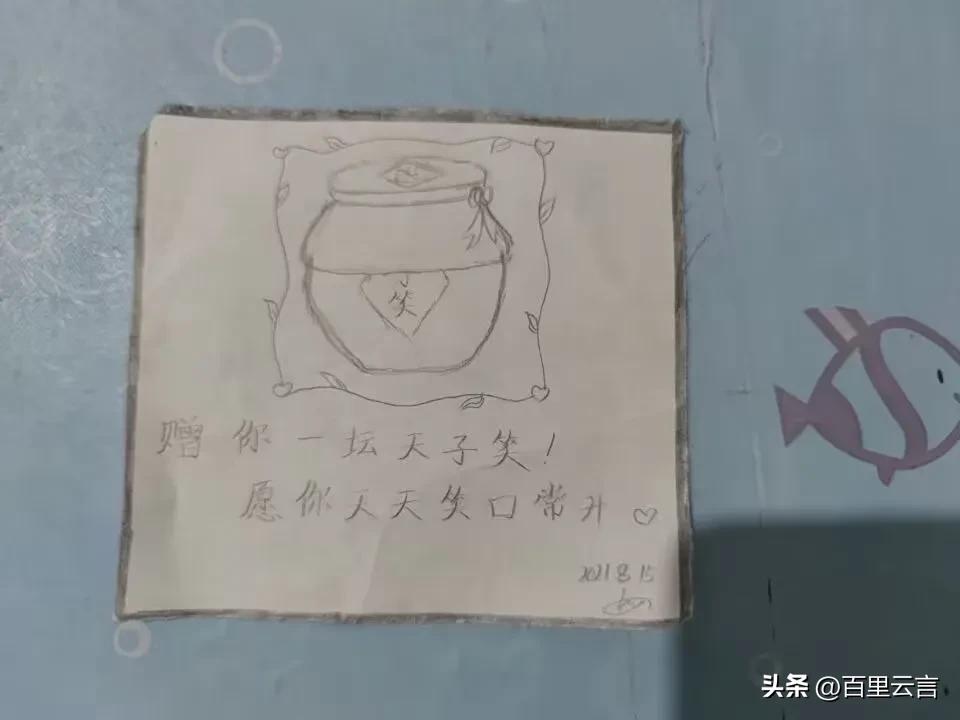 笑
赠你一坛天子笑!
愿你天天笑口常开
2021 8 15
头条 @百里云言